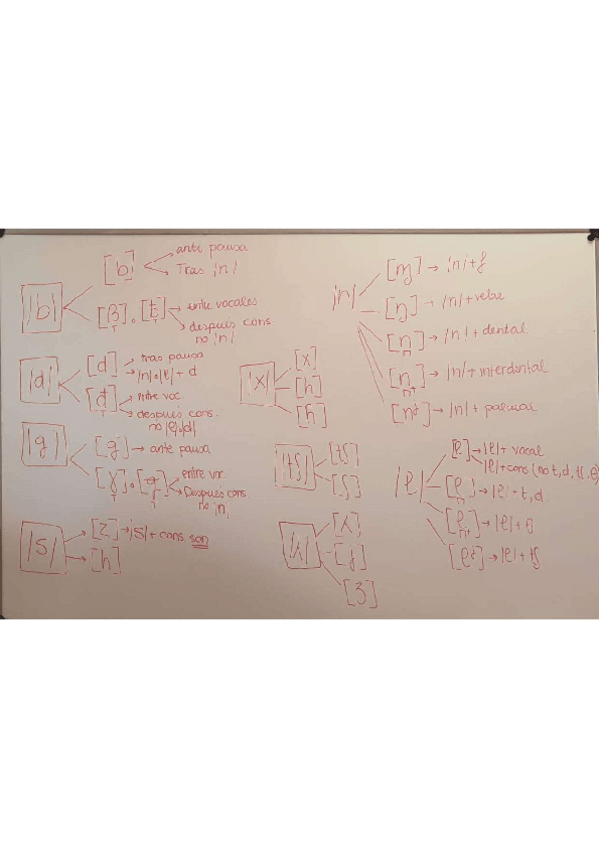 |b|
[b̞] → ante pausa
→ Tras |n|
[β] o [b̞] → entre vocales
→ después cons
no |n|
|d|
[d] → tras pausa
→ |n| o |l| + d
[d̞] → entre voc
→ despues cons.
no |l| o |d|
|g|
[g] → ante pausa
[ɣ] o [g̞] → entre voc.
→ Después cons
no |n|
|s|
[z] → |s| + cons. son
[h]
|x|
[x]
[h]
[ħ]
|tʃ|
[tʃ]
[ʃ]
|ʎ|
[ʎ]
[ʝ]
[ʒ]
|n|
[ɱ] → |n| + f
[ŋ] → |n| + velar
[n̪] → |n| + dental
[n̟] → |n| + interdental
[nʲ] → |n| + palatal
|l|
[l] → |l| + vocal
|l| + cons (no t, d, tʃ, θ)
[l̪] → |l| + t, d.
[l̟] → |l| + θ
[lʲ] → |l| + tʃ